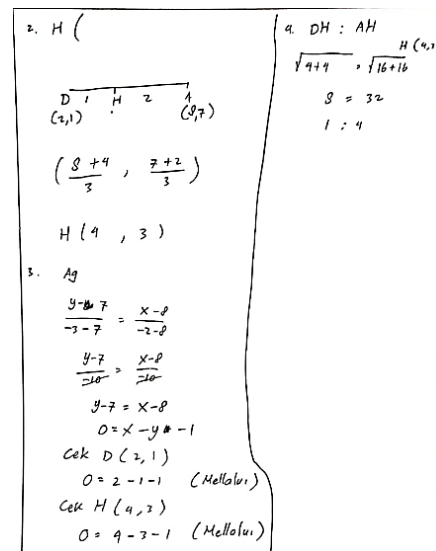 2. H (
D 1 H 2 A
(2,1) (8,7)
( 8+4 / 3 , 7+2 / 3 )
H (4 , 3)
3. Ag
y-7 / -3-7 = x-8 / -2-8
y-7 / -10 = x-8 / -10
y-7 = x-8
0 = x-y-1
Cek D (2,1)
0 = 2-1-1 (Mellalui)
Cek H (4,3)
0 = 4-3-1 (Mellalui)
4. DH : AH
H (4,3
√4+4 = √16+16
8 = 32
1 : 4